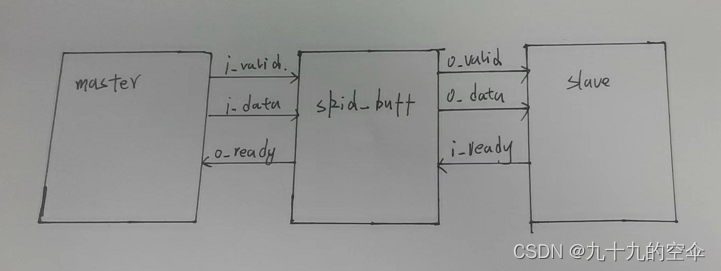 master
i_valid.
i_data
o_ready
skid_buff
o_valid
o_data
i_ready
slave
CSDN @九十九的空伞